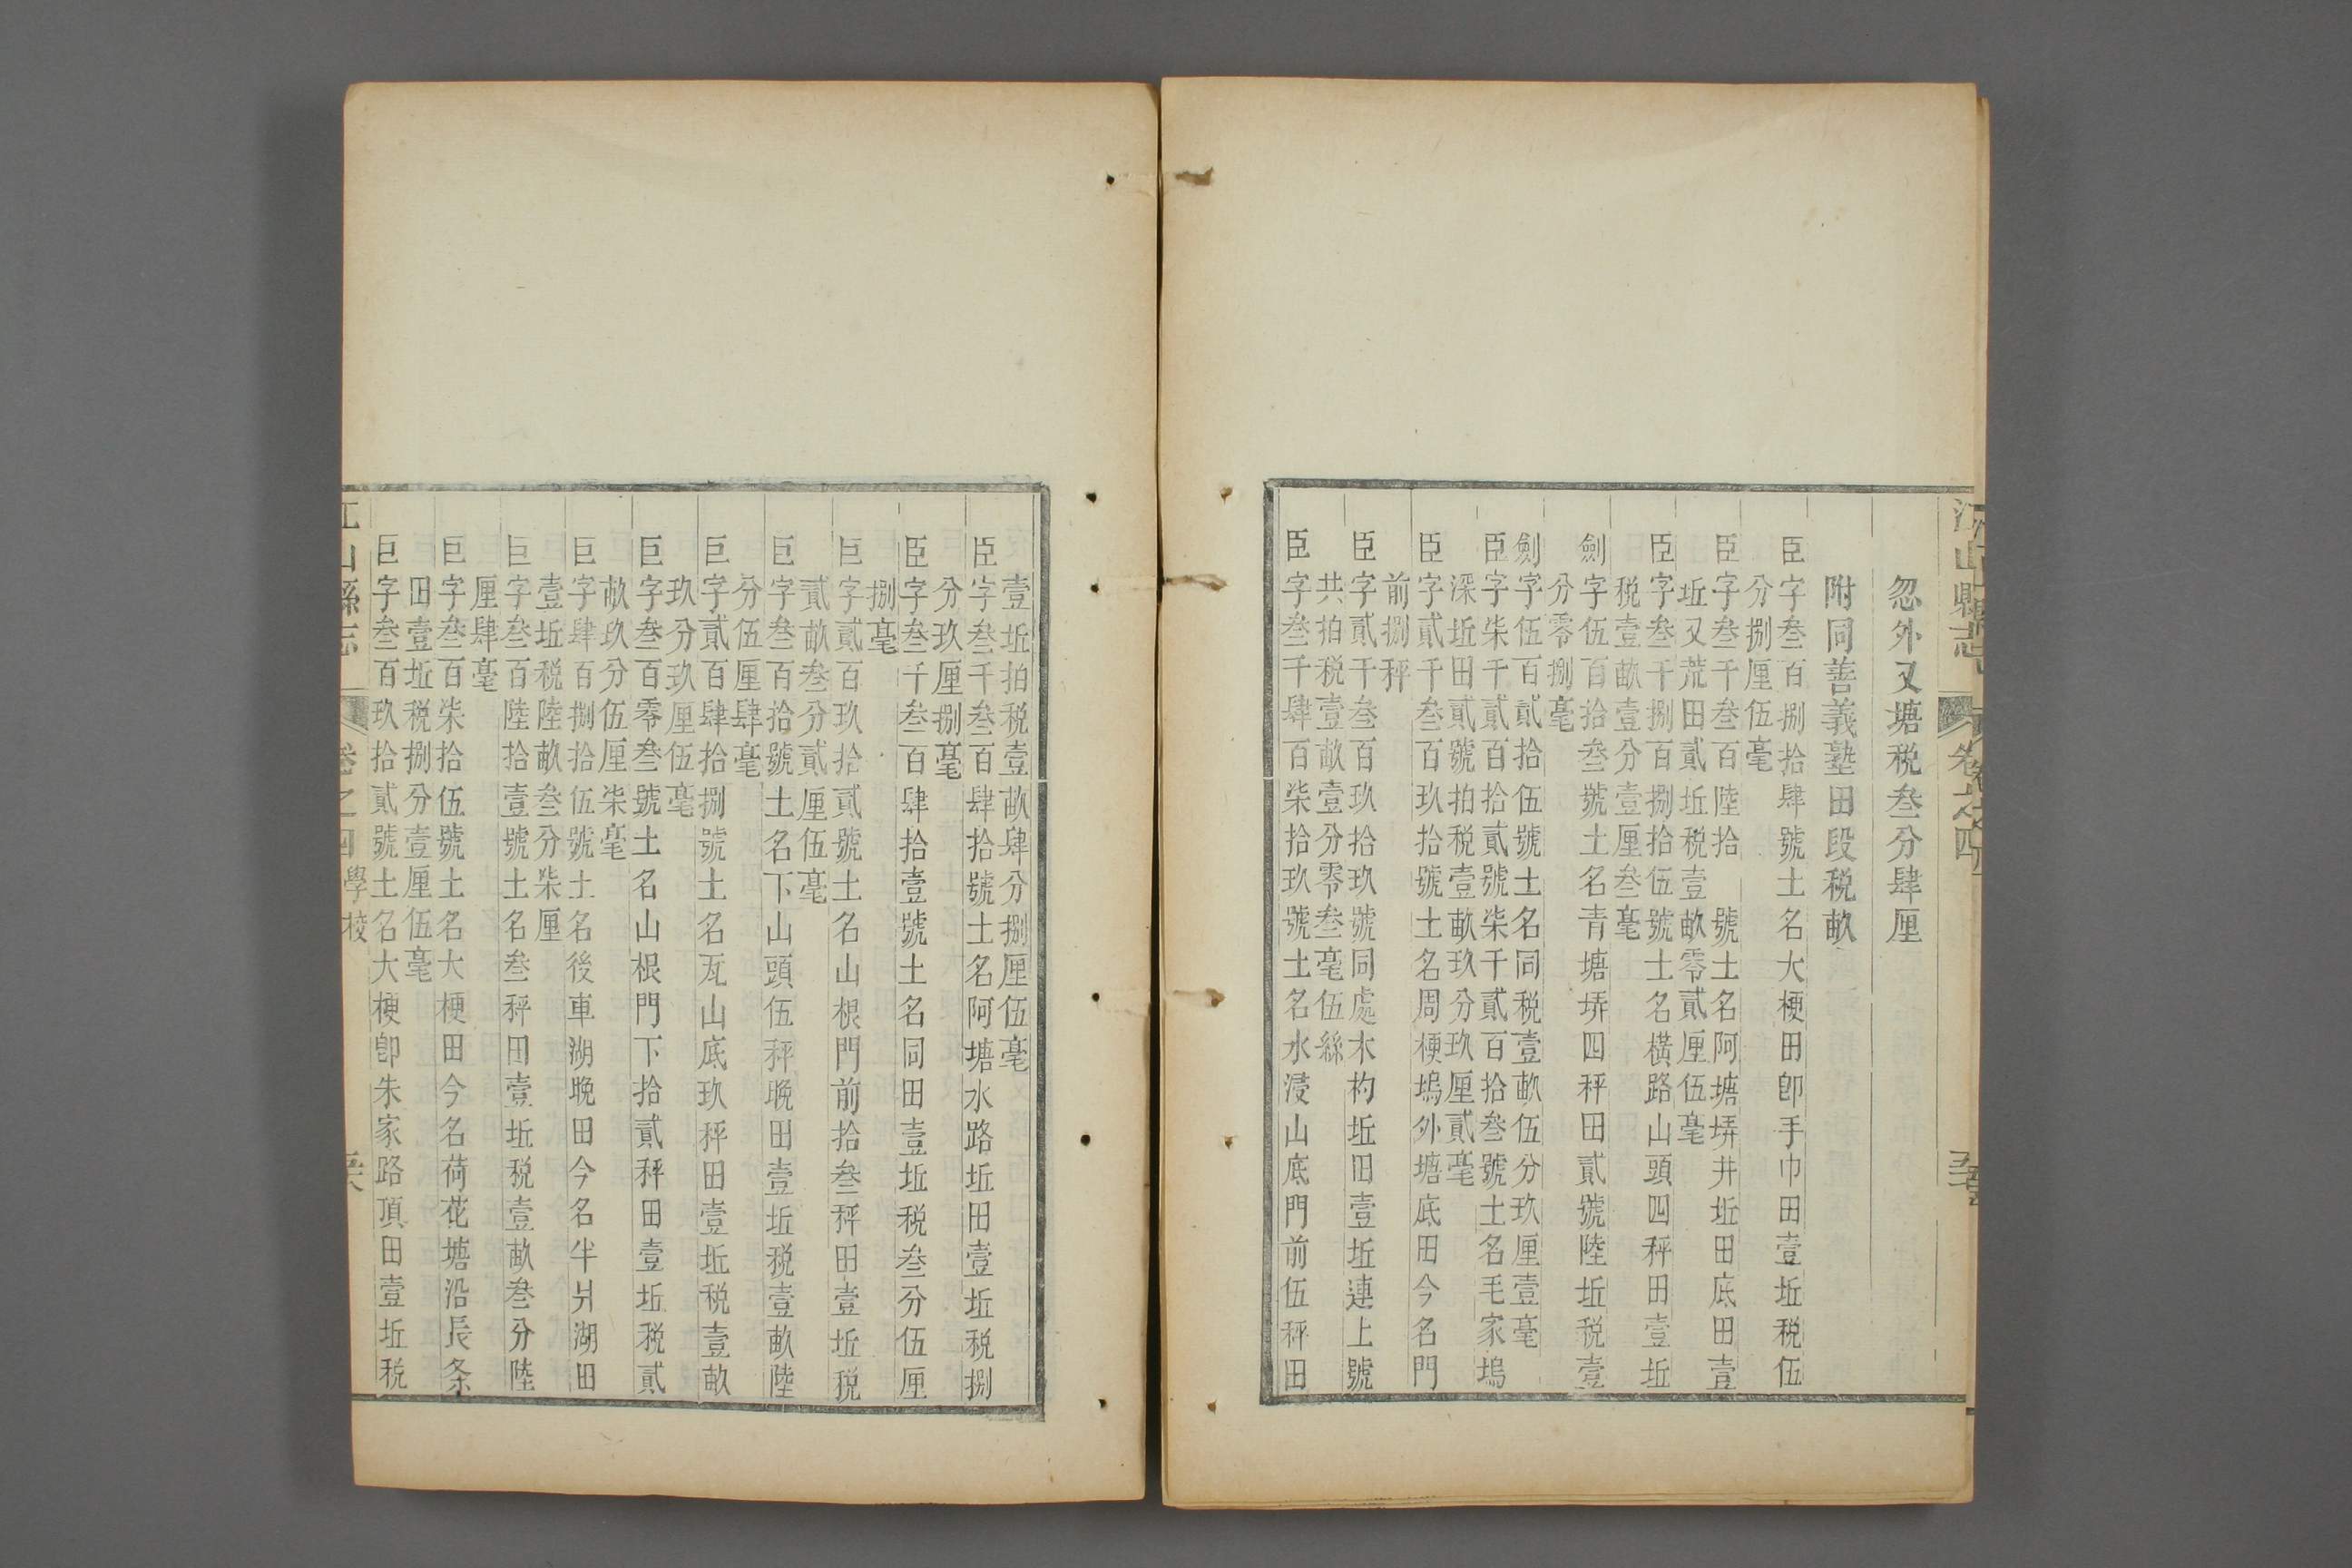 江山縣志
卷之四
忽外又塘税叁分肆厘
附同善義塾田段税畝
臣字叁百捌拾肆號土名大梗田卽手巾田壹坵税伍
分捌厘伍毫
臣字叁千叁百陸拾 號土名阿塘塝井坵田底田壹
坵又荒田貳坵税壹畝零貳厘伍毫
臣字叁千捌百捌拾伍號土名橫路山頭四秤田壹坵
税壹畝壹分壹厘叁毫
劍字伍百拾叁號土名青塘塝四秤田貳號陸坵税壹
分零捌毫
劍字伍百貳拾伍號土名同税壹畝伍分玖厘壹毫
臣字柒千貳百拾貳號柒千貳百拾叁號土名毛家塢
深坵田貳號拍税壹畝玖分玖厘貳毫
臣字貳千叁百玖拾號土名周梗塢外塘底田今名門
前捌秤
臣字貳千叁百玖拾玖號同處木杓坵田壹坵連上號
共拍税壹畝壹分零叁毫伍絲
臣字叁千肆百柒拾玖號土名水浸山底門前伍秤田
壹坵拍税壹畝肆分捌厘伍毫
臣字叁千叁百肆拾號土名阿塘水路坵田壹坵税捌
分玖厘捌毫
臣字叁千叁百肆拾壹號土名同田壹坵税叁分伍厘
捌毫
巨字貳百玖拾貳號土名山根門前拾叁秤田壹坵税
貳畝叁分貳厘伍毫
巨字叁百拾號土名下山頭伍秤晚田壹坵税壹畝陸
分伍厘肆毫
巨字貳百肆拾捌號土名瓦山底玖秤田壹坵税壹畝
玖分玖厘伍毫
巨字叁百零叁號土名山根門下拾貳秤田壹坵税貳
畝玖分伍厘柒毫
巨字肆百捌拾伍號土名後車湖晚田今名半爿湖田
壹坵税陸畝叁分柒厘
巨字叁百陸拾壹號土名叁秤田壹坵税壹畝叁分陸
厘肆毫
巨字叁百柒拾伍號土名大梗田今名荷花塘沿長条
田壹坵税捌分壹厘伍毫
巨字叁百玖拾貳號土名大梗卽朱家路頂田壹坵税
江山縣志
卷之四學校